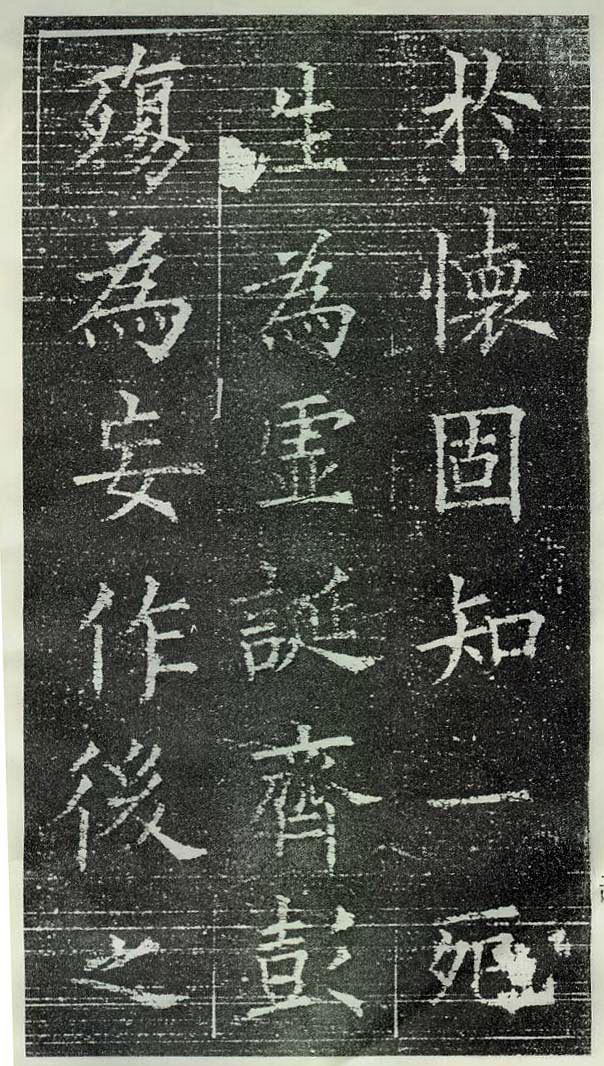 於懷固知一死
生為虚誕齊彭
殤為妄作後之